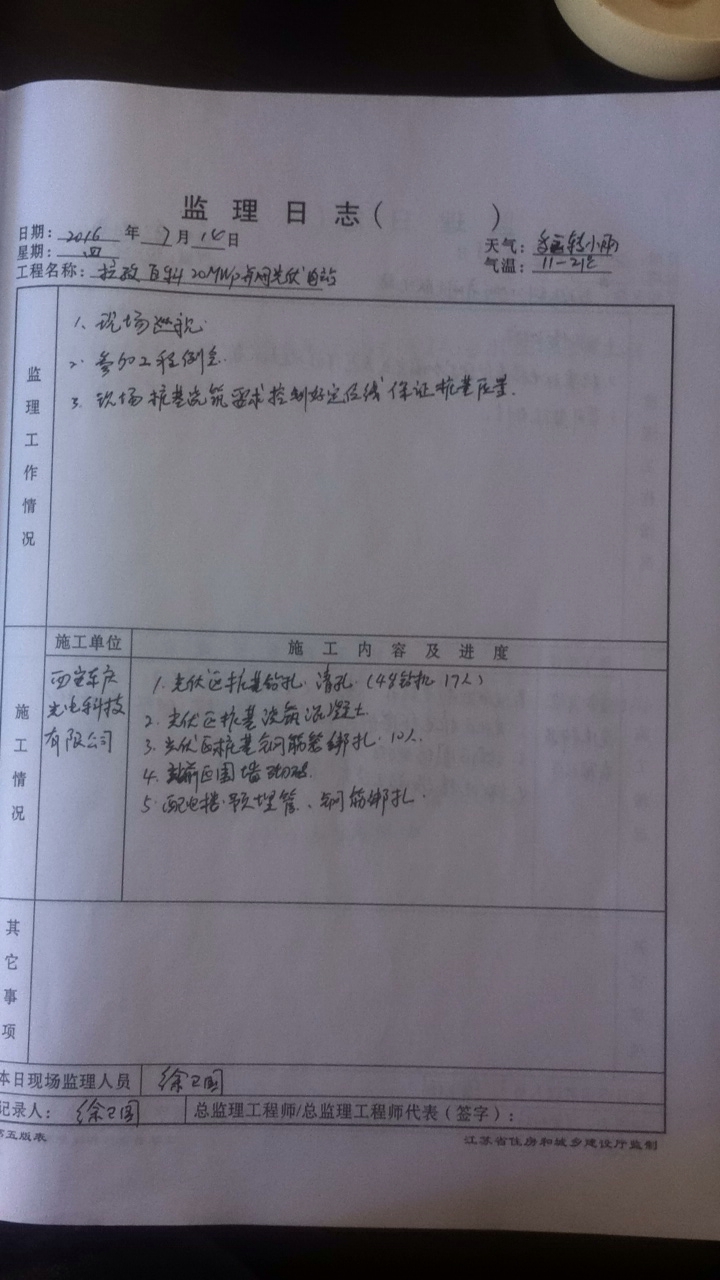 监 理 日 志 ( )
日期: 2016 年 7 月 14 日
星期: 四
天气: 多云转小雨
气温: 11-21℃
工程名称: 拉孜 20MWp并网光伏电站
监理工作情况
1、现场巡视.
2、参加工程例会.
3、现场桩基浇筑要求控制好定位线保证桩基质量.
施工情况
施工单位
施 工 内 容 及 进 度
西安东 光电科技有限公司
1、光伏区桩基钻孔. 清孔. (4台钻机 17人)
2、光伏区桩基浇筑混凝土.
3、光伏区桩基钢筋笼绑扎. 10人.
4、站前区围墙砌砖.
5、配电楼. 预埋管、钢筋绑扎.
其它事项
本日现场监理人员 徐卫国
记录人: 徐卫国
总监理工程师/总监理工程师代表(签字):
第五版表
江苏省住房和城乡建设厅监制